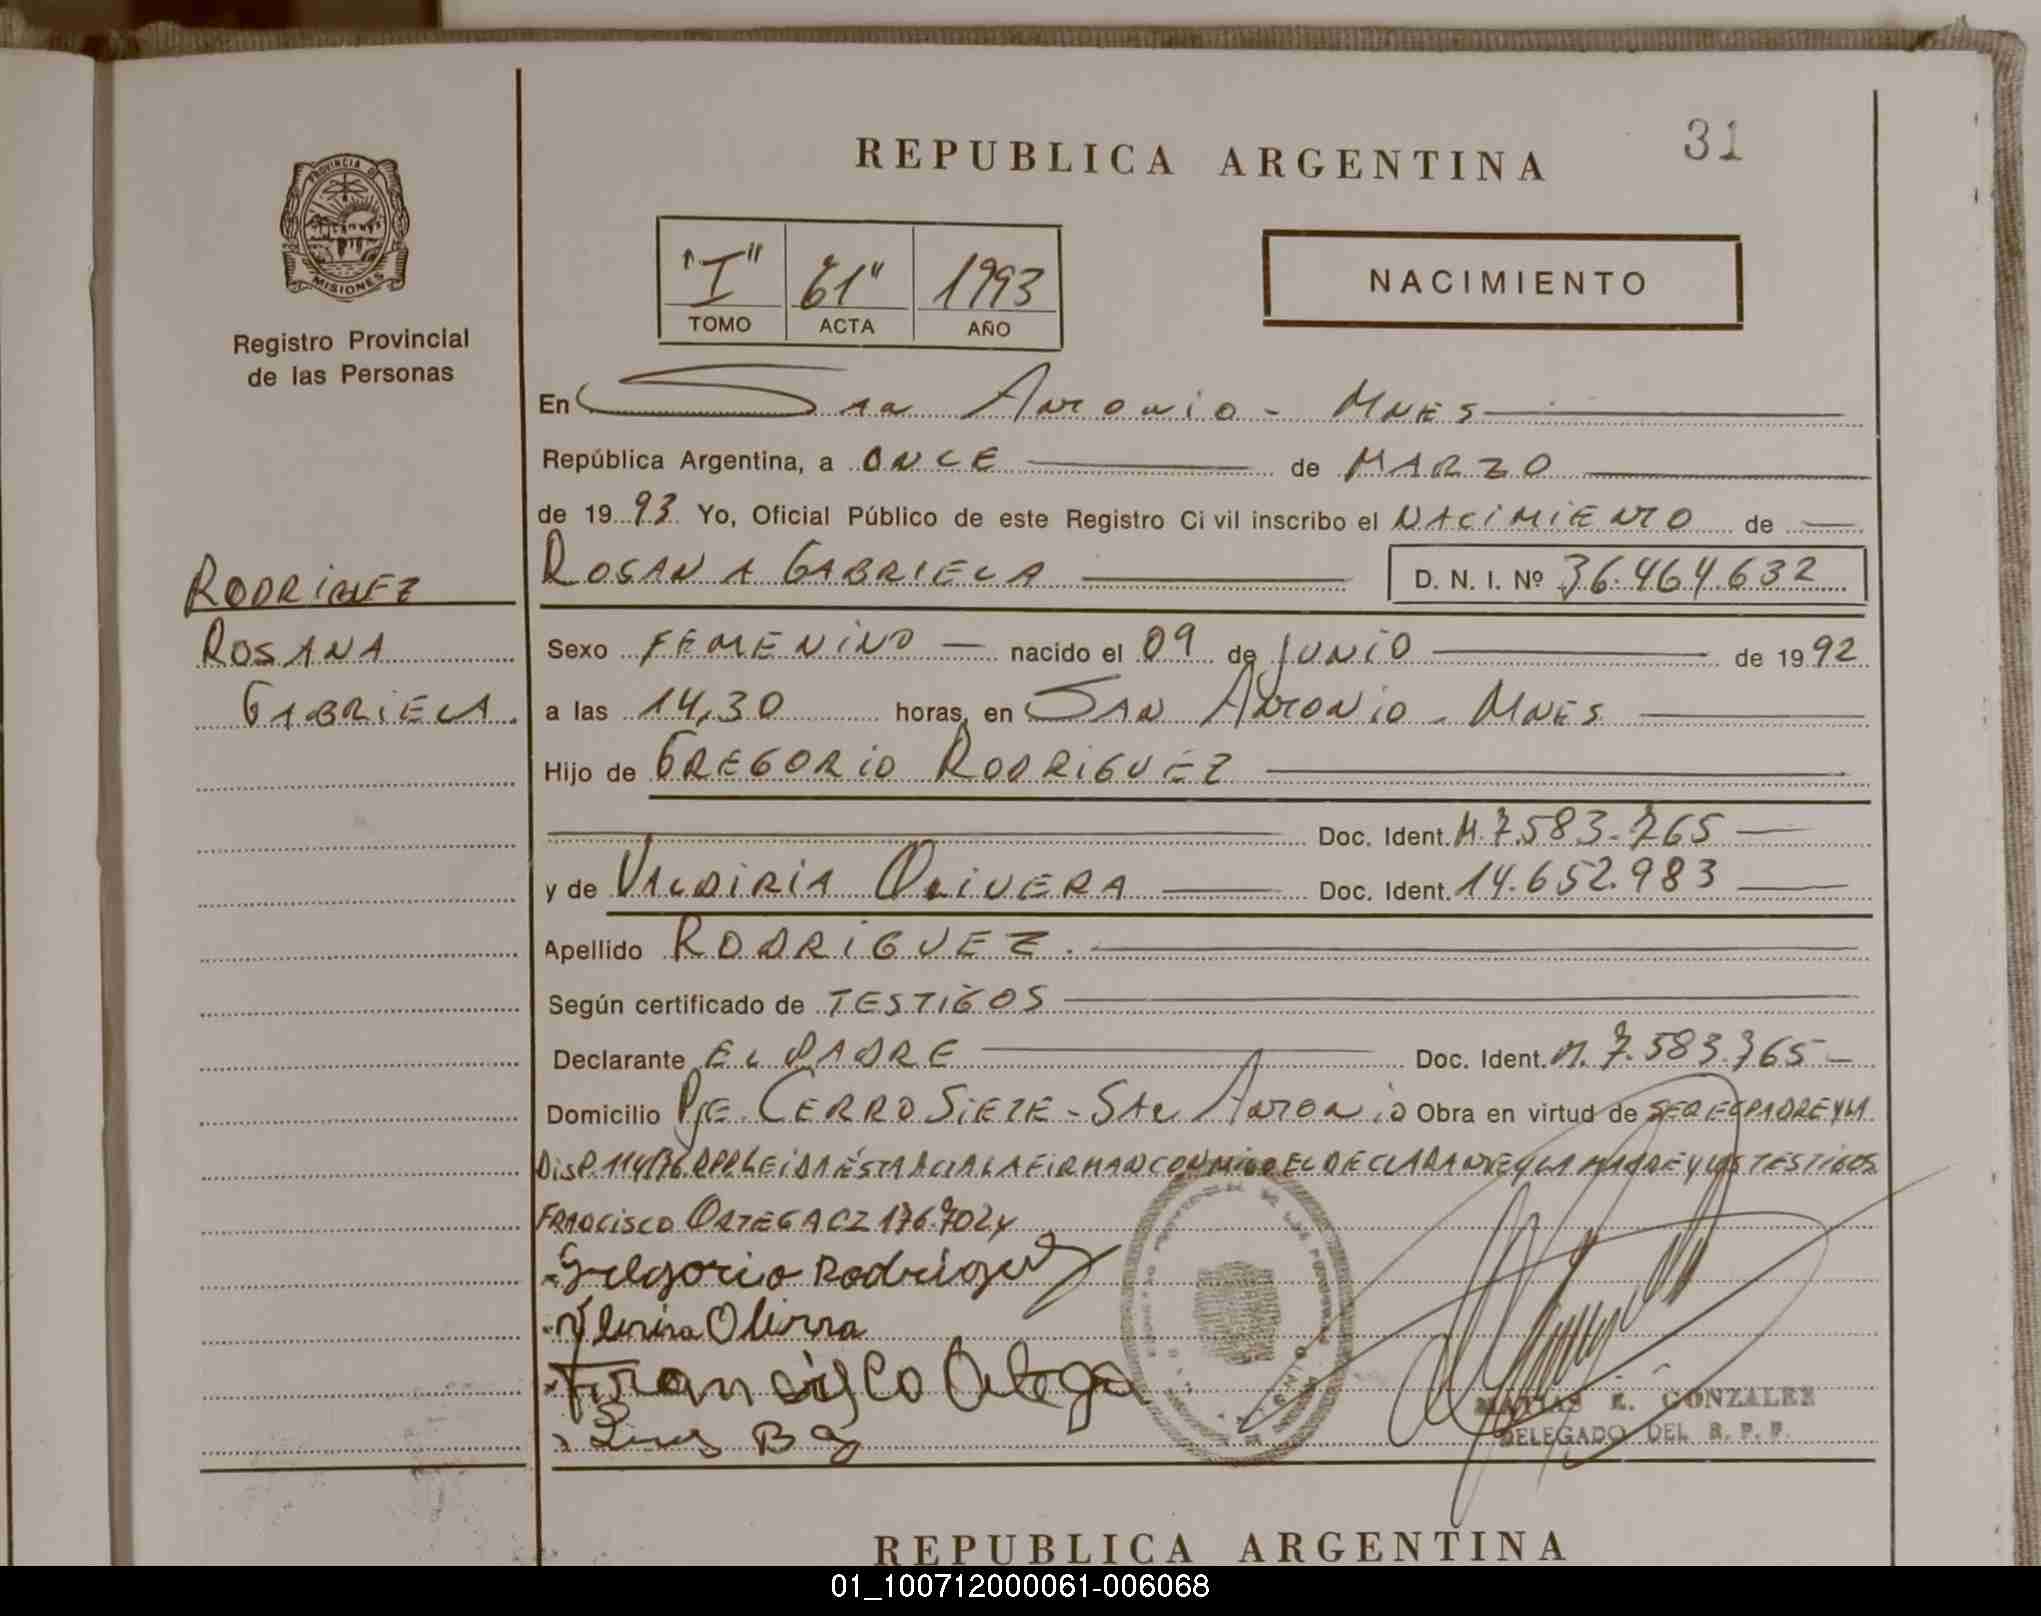 REPUBLICA ARGENTINA
31
PROVINCIA DE
MISIONES
Registro Provincial
de las Personas
"I" 61" 1993
TOMO ACTA AÑO
NACIMIENTO
En San Antonio - Mnes
República Argentina, a ONCE de MARZO
de 1993 Yo, Oficial Público de este Registro Civil inscribo el NACIMIENTO de
ROSANA GABRIELA D. N. I. Nº 36.464.632
RODRIGUEZ
ROSANA
GABRIELA.
Sexo FEMENINO nacido el 09 de JUNIO de 1992
a las 14,30 horas, en SAN ANTONIO - MNES
Hijo de GREGORIO RODRIGUEZ
Doc. Ident. M.7.583.765
y de VALDIRIA OLIVERA Doc. Ident. 14.652.983
Apellido RODRIGUEZ.
Según certificado de TESTIGOS
Declarante EL PADRE Doc. Ident. M. 7.583.765
Domicilio Pje. CERRO SIETE - SAN ANTONIO Obra en virtud de SER EL PADRE Y LA
DISP. 114/76. RPP. LEIDA ÉSTA ACTA LA FIRMAN CONMIGO EL DECLARANTE Y LA MADRE Y LOS TESTIGOS
FRANCISCO ORTEGA CZ 176.702 y
Gregorio Rodriguez
Olivera
Francisco Ortega
Luis
MATIAS E. GONZALEZ
DELEGADO DEL R. P. P.
REPUBLICA ARGENTINA
01_100712000061-006068